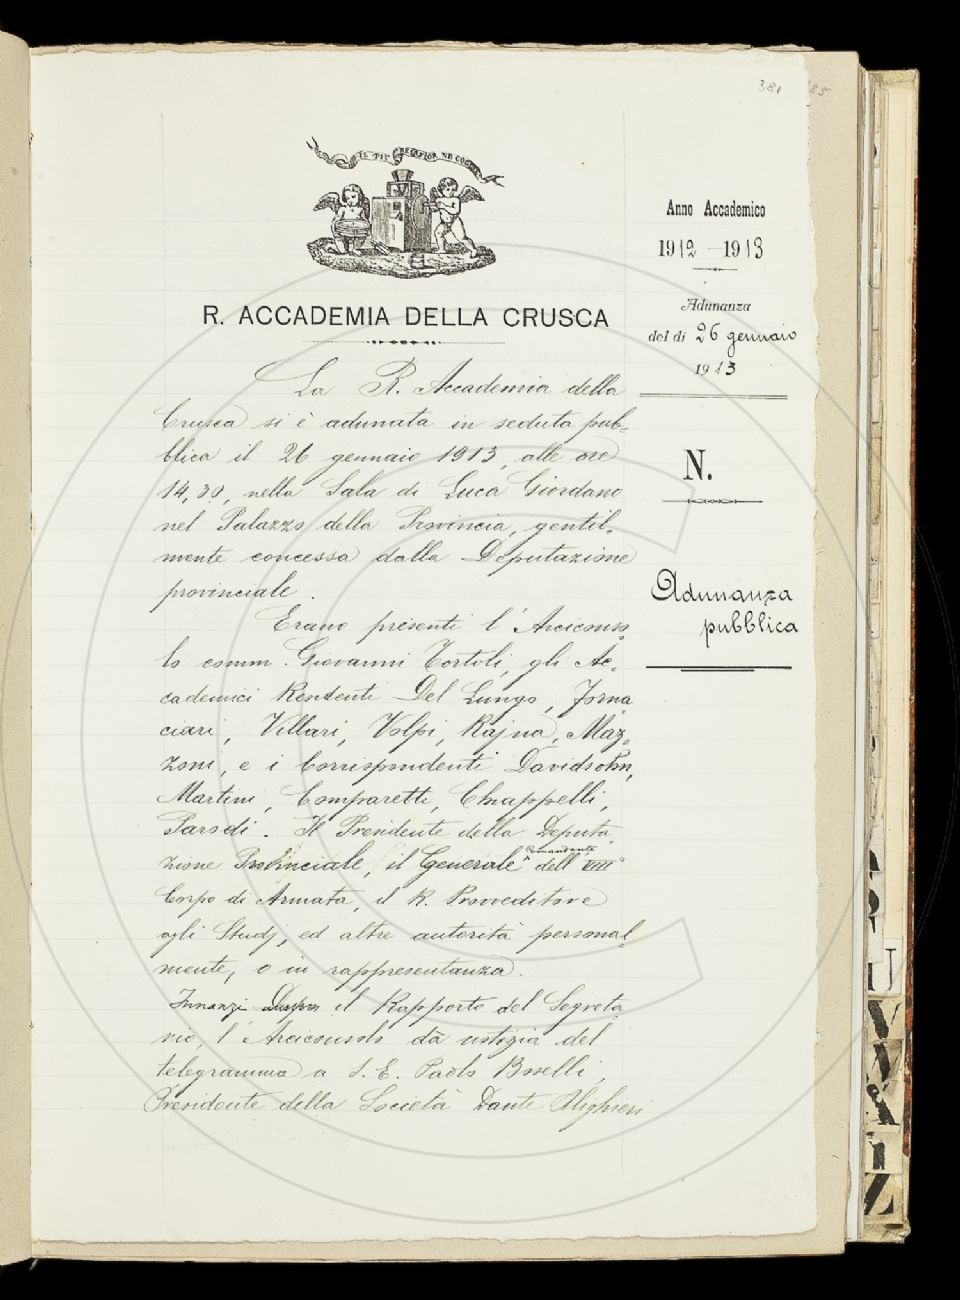 381 385
IL PIÙ BEL FIOR NE COGLIE
R. ACCADEMIA DELLA CRUSCA
Anno Accademico
1912-1913
Adunanza
del dì 26 gennaio
1913
N.
Adunanza
pubblica
La R. Accademia della
Crusca si è adunata in seduta pub-
blica il 26 gennaio 1913, alle ore
14,30, nella Sala di Luca Giordano
nel Palazzo della Provincia, gentil-
mente concessa dalla Deputazione
provinciale.
Erano presenti l'Arciconso
lo comm. Giovanni Tortoli, gli Ac-
cademici Residenti Del Lungo, Forna
ciari, Villari, Volpi, Rajna, Maz-
zoni, e i Corrispondenti Davidsohn,
Martini, Comparetti, Chiappelli,
Parodi. Il Presidente della Deputa
zione Provinciale, il Generale comandante dell'VIII°
Corpo di Armata, il R. Provveditore
agli Studj, ed altre autorità personal-
mente, o in rappresentanza.
Innanzi Dopo il Rapporto del Segreta
rio, l'Arciconsolo dà notizia del
telegramma a S. E. Paolo Boselli,
Presidente della Società Dante Alighieri
U
V
Z